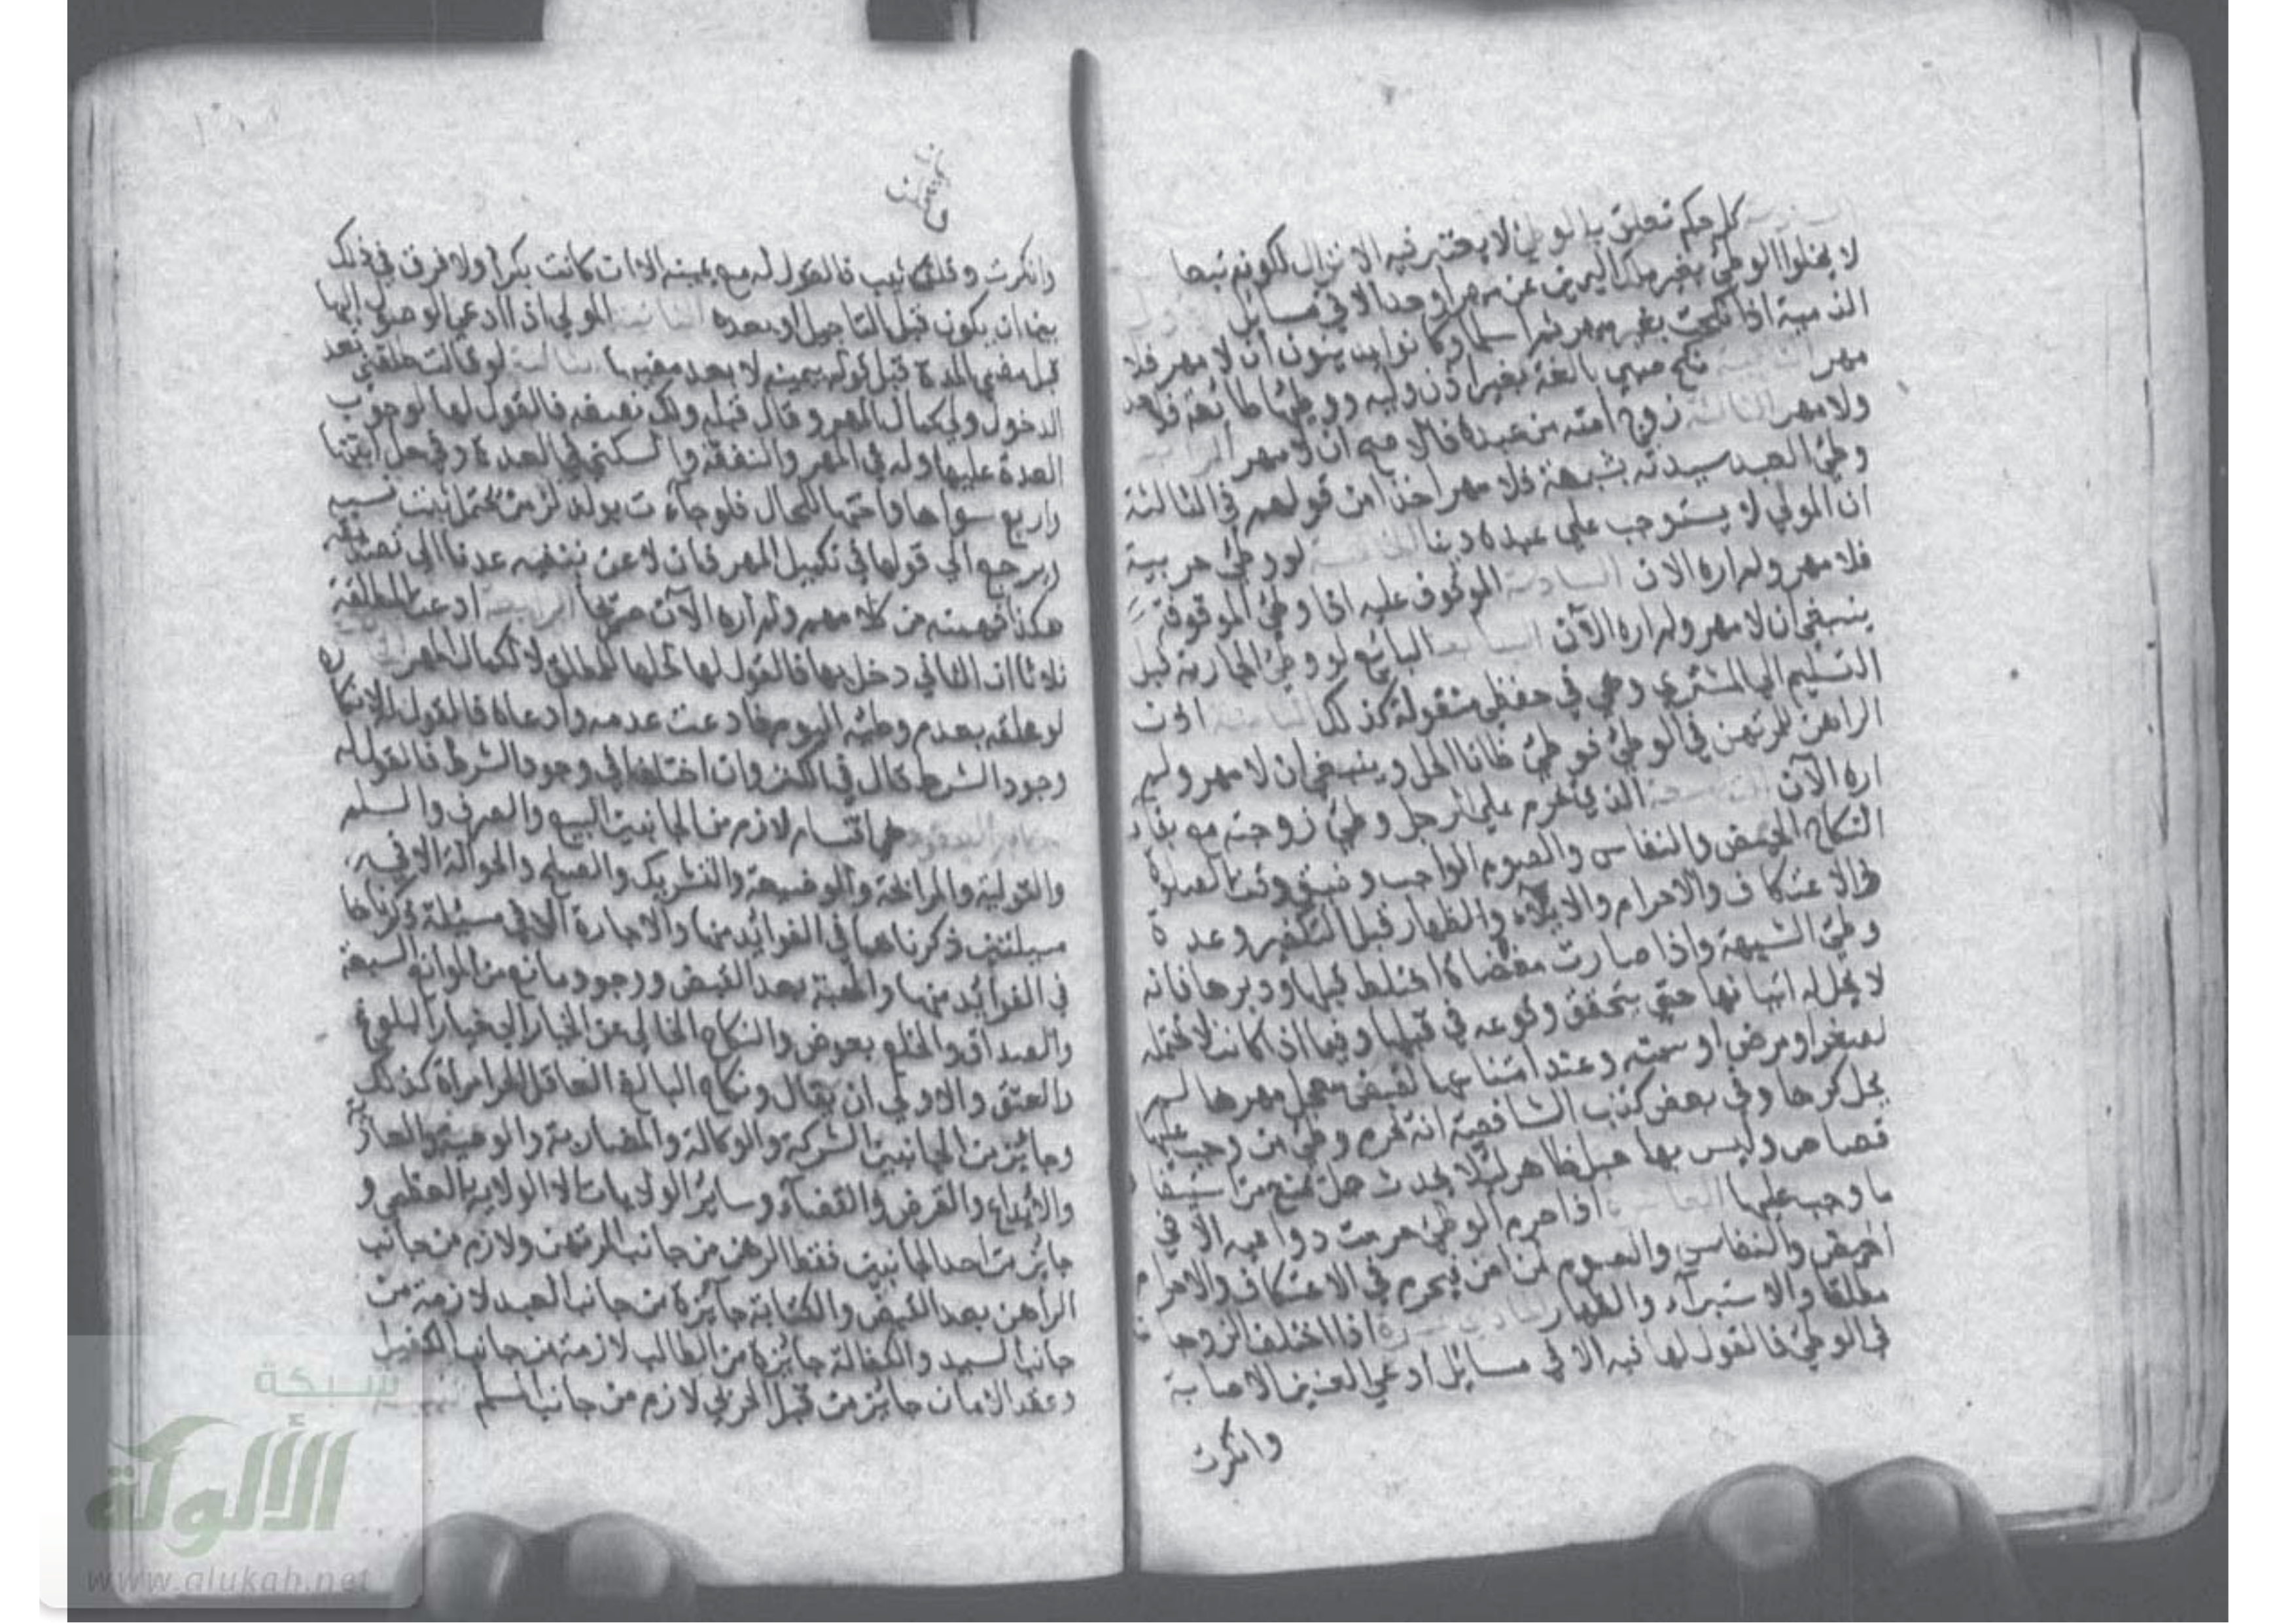 كل حكم تعلق بالوطئ لا يعتبر فيه الانزال لكونه تبعا
لا يخلوا الوطئ بغير ملك اليمين عن مهر او حد الا في مسائل
الذمية اذا نكحت بغير مهر ثم اسلما وكانوا يدينون ان لا مهر فلا
مهر الثانية نكح صبي بالغة بغير اذن وليه ووطئها طائعة فلا حد
ولا مهر الثالثة زوج امته من عبده فالاصح ان لا مهر الرابعة
وطئ العبد سيدته بشبهة فلا مهر اخذا من قولهم في الثالثة
ان المولي لا يستوجب علي عبده دينا الخامسة لو وطئ حربية
فلا مهر ولم اره الان السادسة الموقوف عليه اذا وطئ الموقوفة
ينبغي ان لا مهر ولم اره الآن السابعة البائع لو وطئ الجارية قبل
التسليم الي المشتري وهي في حفظي منقولة كذلك الثامنة اذن
الراهن للمرتهن في الوطئ فوطئ ظانا الحل وينبغي ان لا مهر ولم
اره الآن التاسعة الذي يحرم علي الرجل وطئ زوجته مع بقاء
النكاح الحيض والنفاس والصوم الواجب وضيق وقت الصلوة
والاعتكاف والاحرام والايلاء والظهار قبل التكفير وعدة
وطئ الشبهة واذا صارت مفضاة اختلط قبلها ودبرها فانه
لا يحل له اتيانها حتي يتحقق وقوعه في قبلها وفيما اذا كانت لا تحتمله
لصغر او مرض او سمنه وعند امتناعها لقبض معجل مهرها لم
يحل كرها وفي بعض كتب الشافعية انه يحرم وطئ من وجب عليها
قصاص وليس بها حبل ظاهر لئلا يحدث حمل يمنع من استيفا
ما وجب عليها العاشرة اذا حرم الوطئ حرمت دواعيه الا في
الحيض والنفاس والصوم لمن امن فيحرم في الاعتكاف والاحرام
مطلقا والاستبراء والظهار الحادية عشرة اذا اختلف الزوجا
في الوطئ فالقول لها فيه الا في مسائل ادعي العنين الاصابة
وانكرت
وانكرت وقلن ثيب فالقول له مع يمينه الا ان كانت بكرا ولا فرق في ذلك
بين ان يكون قبل التاجيل او بعده الثانية المولي اذا ادعي الوصول اليها
قبل مضي المدة قبل قوله بيمينه لا بعد مضيها الثالثة لو قالت طلقني بعد
الدخول ولي كمال المهر وقال قبله ولك نصفه فالقول لها لوجوب
العدة عليها وله في المهر والنفقة والسكني في العدة وفي حل ابنتها
واربع سواها واختها للحال فلو جاءت بولد لزمن يحتمل ثبت نسبه
ويرجع الي قولها في تكميل المهر فان لاعن بنفيه عدنا الي تصديقه
هكذا فهمته من كلامهم ولم اره الآن صريحا الرابعة ادعت المطلقة
ثلاثا ان الثاني دخل بها فالقول لها لحلها للمطلق لا لكمال المهر
لو علقه بعدم وطئه اليوم فادعت عدمه وادعاه فالقول له لانكاره
وجود الشرط قال في الكنز وان اختلفا في وجود الشرط فالقول له
هي اقسام لازم من الجانبين البيع والصرف والسلم
والتولية والمرابحة والوضيعة والتشريك والصلح والحوالة الا في
مسئلتين ذكرناهما في الفوائد منها والاجارة الا في مسئلة ذكرناها
في الفوائد منها والهبة بعد القبض ووجود مانع من الموانع السبعة
والصداق والخلع بعوض والنكاح الخالي عن الخيار اي خيار البلوغ
والعتق والاولي ان يقال ونكاح البالغ العاقل الحر امراة كذلك
وجائز من الجانبين الشركة والوكالة والمضاربة والوصية والعارية
والايداع والقرض والقضاء وسائر الولايات الا الولاية العظمي و
جائز من احد الجانبين فقط الرهن من جانب المرتهن ولازم من جانب
الراهن بعد القبض والكتابة جائزة من جانب العبد لازمة من
جانب السيد والكفالة جائزة من الطالب لازمة من جانب الكفيل
وعقد الامان جائز من قبل الحربي لازم من جانب المسلم
شبكة
الألوكة
www.alukah.net